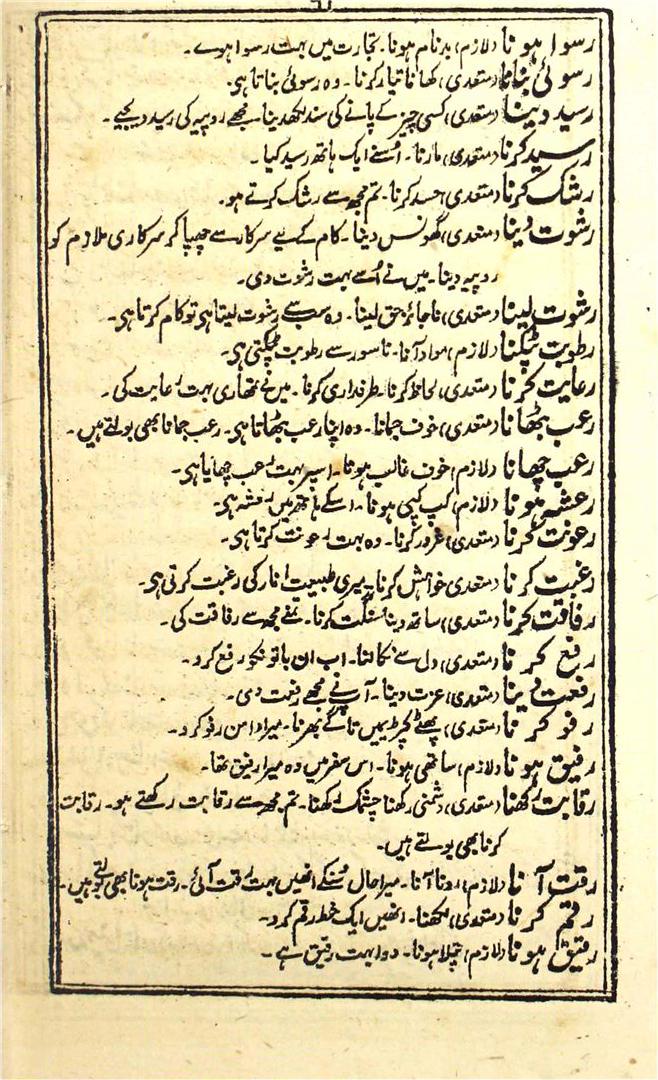 رسوا ہونا (لازم) بدنام ہونا۔ تجارت میں بہت رسوا ہوے۔
رسوئی بنانا (متعدی) کھانا تیار کرنا۔ وہ رسوئی بناتا ہی۔
رسید دینا (متعدی) کسی چیز کے پانے کی سند لکھدینا۔ مجھے روپیہ کی رسید دیجیے۔
رسید کرنا (متعدی) مارنا۔ اُسنے ایک ہاتھ رسید کیا۔
رشک کرنا (متعدی) حسد کرنا۔ تم مجھ سے رشک کرتے ہو۔
رشوت دینا (متعدی) گھونس دینا۔ کام کے لیے سرکار سے چھپا کر سرکاری ملازم کو
روپیہ دینا۔ میں نے اُسے بہت رشوت دی۔
رشوت لینا (متعدی) ناجائز حق لینا۔ وہ سب سے رشوت لیتا ہی تو کام کرتا ہی۔
رطوبت ٹپکنا (لازم) مواد آنا۔ ناسور سے رطوبت ٹپکتی ہی۔
رعایت کرنا (متعدی) لحاظ کرنا۔ طرفداری کرنا۔ میں نے تمھاری بہت رعایت کی۔
رعب بٹھانا (متعدی) خوف جمانا۔ وہ اپنا رعب بٹھاتا ہی۔ رعب جمانا بھی بولتے ہیں۔
رعب چھانا (لازم) خوف غالب ہونا۔ اسپر بہت رعب چھایا ہی۔
رعشہ ہونا (لازم) کپ کپی ہونا۔ اسکے ہاتھ میں رعشہ ہی۔
رعونت کرنا (متعدی) غرور کرنا۔ وہ بہت رعونت کرتا ہی۔
رغبت کرنا (متعدی) خواہش کرنا۔ میری طبیعت انار کی رغبت کرتی ہی۔
رفاقت کرنا (متعدی) ساتھ دینا سنگت کرنا۔ تمنے مجھ سے رفاقت کی۔
رفع کرنا (متعدی) دل سے نکالنا۔ اب ان باتونکو رفع کرو۔
رفعت دینا (متعدی) عزت دینا۔ آپ نے مجھے رفعت دی۔
رفو کرنا (متعدی) پھٹے کپڑے میں تاگے بھرنا۔ میرا دامن رفو کرو۔
رفیق ہونا (لازم) ساتھی ہونا۔ اس سفر میں وہ میرا رفیق تھا۔
رقابت رکھنا (متعدی) دشمنی رکھنا چشمک رکھنا۔ تم مجھ سے رقابت رکھتے ہو۔ رقابت
کرنا بھی بولتے ہیں۔
رقت آنا (لازم) رونا آنا۔ میرا حال سُنکے انھیں بہت رقت آئی۔ رقت ہونا بھی بولتے ہیں۔
رقم کرنا (متعدی) لکھنا۔ انھیں ایک خط رقم کرو۔
رقیق ہونا (لازم) پتلا ہونا۔ دوا بہت رقیق ہے۔